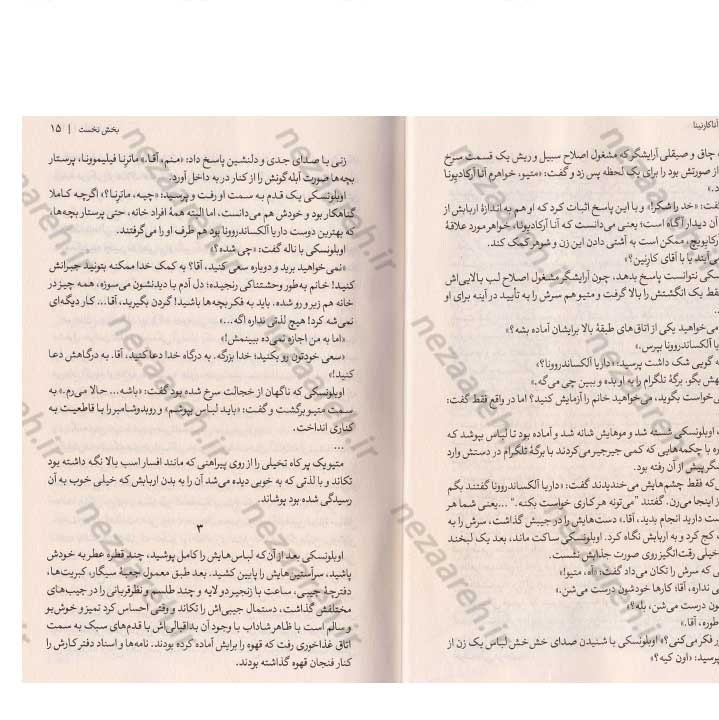 آناکارنینا
چاق و صیقلی آرایشگر که مشغول اصلاح سبیل و ریش یک قسمت سرخ
از صورتش بود را برای یک لحظه پس زد و گفت: «متیو، خواهرم آنا آرکادیونا
گفت: «خدا رو شکر!» و با این پاسخ اثبات کرد که او هم به اندازهٔ اربابش از
آن دیدار آگاه است؛ یعنی می‌دانست که آنا آرکادیونا، خواهر مورد علاقهٔ
آرکادیویچ، ممکن است به آشتی دادن این زن و شوهر کمک کند.
می‌آیند یا با آقای کارنین؟»
نسکی نتوانست پاسخ بدهد، چون آرایشگر مشغول اصلاح لب بالایی‌اش
فقط یک انگشتش را بالا گرفت و متیو هم سرش را به تأیید در آینه برای او
می‌خواهید یکی از اتاق‌های طبقهٔ بالا برایشان آماده بشه؟»
یا آلکساندروونا بپرس.»
گویی شک داشت پرسید: «داریا آلکساندروونا؟»
بهش بگو. برگهٔ تلگرام را به او بده و ببین چی می‌گه.»
می‌خواست بگوید، می‌خواهید خانم را آزمایش کنید؟ اما در واقع فقط گفت:
اوبلونسکی شسته شد و موهایش شانه شد و آماده بود تا لباس بپوشد که
با چکمه‌هایی که کمی جیرجیر می‌کردند با برگهٔ تلگرام در دستش وارد
شگر پیش از آن رفته بود.
که فقط چشم‌هایش می‌خندیدند گفت: «داریا آلکساندروونا گفتند بگم
از اینجا می‌رن. گفتند "می‌تونه هر کاری خواست بکنه." ...یعنی شما هر
ست دارید انجام بدید، آقا.» دست‌هایش را در جیبش گذاشت، سرش را به
کج کرد و به اربابش نگاه کرد. اوبلونسکی ساکت ماند، بعد یک لبخند
خیلی رقت‌انگیز روی صورت جذابش نشست.
که سرش را تکان می‌داد گفت: «اه، متیو!»
نداره، آقا؛ کارها خودشون درست می‌شن.»
ون درست می‌شن، بله؟»
طوره، آقا.»
ور فکر می‌کنی؟» اوبلونسکی با شنیدن صدای خش‌خش لباس یک زن از
پرسید: «اون کیه؟»
بخش نخست | ۱۵
زنی با صدای جدی و دلنشین پاسخ داد: «منم، آقا.» ماترنا فیلیموونا، پرستار
بچه‌ها صورت آبله‌گونش را از کنار در به داخل آورد.
اوبلونسکی یک قدم به سمت او رفت و پرسید: «چیه، ماترنا؟» اگرچه کاملا
گناهکار بود و خودش هم می‌دانست، اما البته همهٔ افراد خانه، حتی پرستار بچه‌ها،
که بهترین دوست داریا آلکساندروونا بود هم طرف او را می‌گرفتند.
اوبلونسکی با ناله گفت: «چی شده؟»
«نمی‌خواهید برید و دوباره سعی کنید، آقا؟ به کمک خدا ممکنه بتونید جبرانش
کنید! خانم به‌طور وحشتناکی رنجیده؛ دل آدم با دیدنشون می‌سوزه، همه چیز در
خانه هم زیر و رو شده. باید به فکر بچه‌ها باشید! گردن بگیرید، آقا... کار دیگه‌ای
نمی‌شه کرد! هیچ لذتی نداره اگه...»
«اما به من اجازه نمی‌ده ببینمش!»
«سعی خودتون رو بکنید؛ خدا بزرگه. به درگاه خدا دعا کنید، آقا. به درگاهش دعا
کنید!»
اوبلونسکی که ناگهان از خجالت سرخ شده بود گفت: «باشه... حالا می‌رم.» به
سمت متیو برگشت و گفت: «باید لباس بپوشم» و روبدوشامبر را با قاطعیت به
کناری انداخت.
...
متیو یک پر کاه تخیلی را از روی پیراهنی که مانند افسار اسب بالا نگه داشته بود
تکاند و با لذتی که به خوبی دیده می‌شد آن را به بدن اربابش که خیلی خوب به آن
رسیدگی شده بود پوشاند.
۳
اوبلونسکی بعد از آن که لباس‌هایش را کامل پوشید، چند قطره عطر به خودش
پاشید، سرآستین‌هایش را پایین کشید. بعد طبق معمول جعبهٔ سیگار، کبریت‌ها،
دفترچهٔ جیبی، ساعت با زنجیر دو لایه و چند طلسم و نظرقربانی را در جیب‌های
مختلفش گذاشت، دستمال جیبی‌اش را تکاند و وقتی احساس کرد تمیز و خوش‌بو
و سالم است با ظاهر شاداب با وجود آن بداقبالی‌اش با قدم‌های سبک به سمت
اتاق غذاخوری رفت که قهوه را برایش آماده کرده بودند. نامه‌ها و اسناد دفتر کارش را
کنار فنجان قهوه گذاشته بودند.
nezaareh.ir